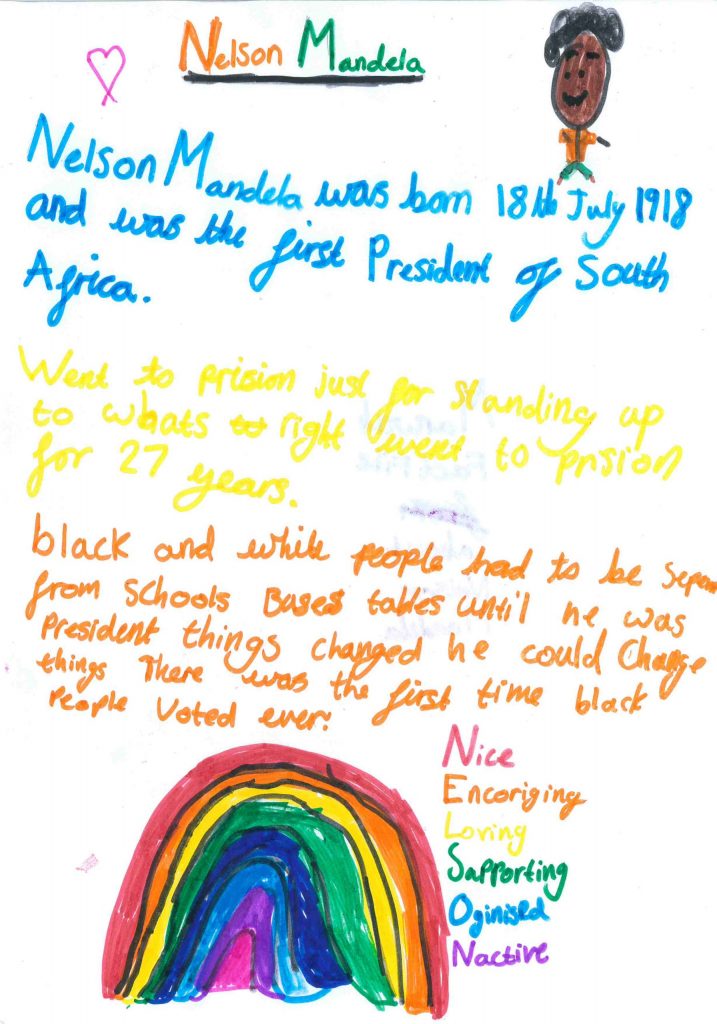 Nelson Mandela
Nelson Mandela was born 18th July 1918
and was the first President of South
Africa.
Went to prision just for standing up
to whats to right went to prision
for 27 years.
black and white people had to be separ
from schools Buses tables until he was
President things changed he could Change
things There was the first time black
People Voted ever!
Nice
Encoriging
Loving
Sapporting
Oginised
Nactive